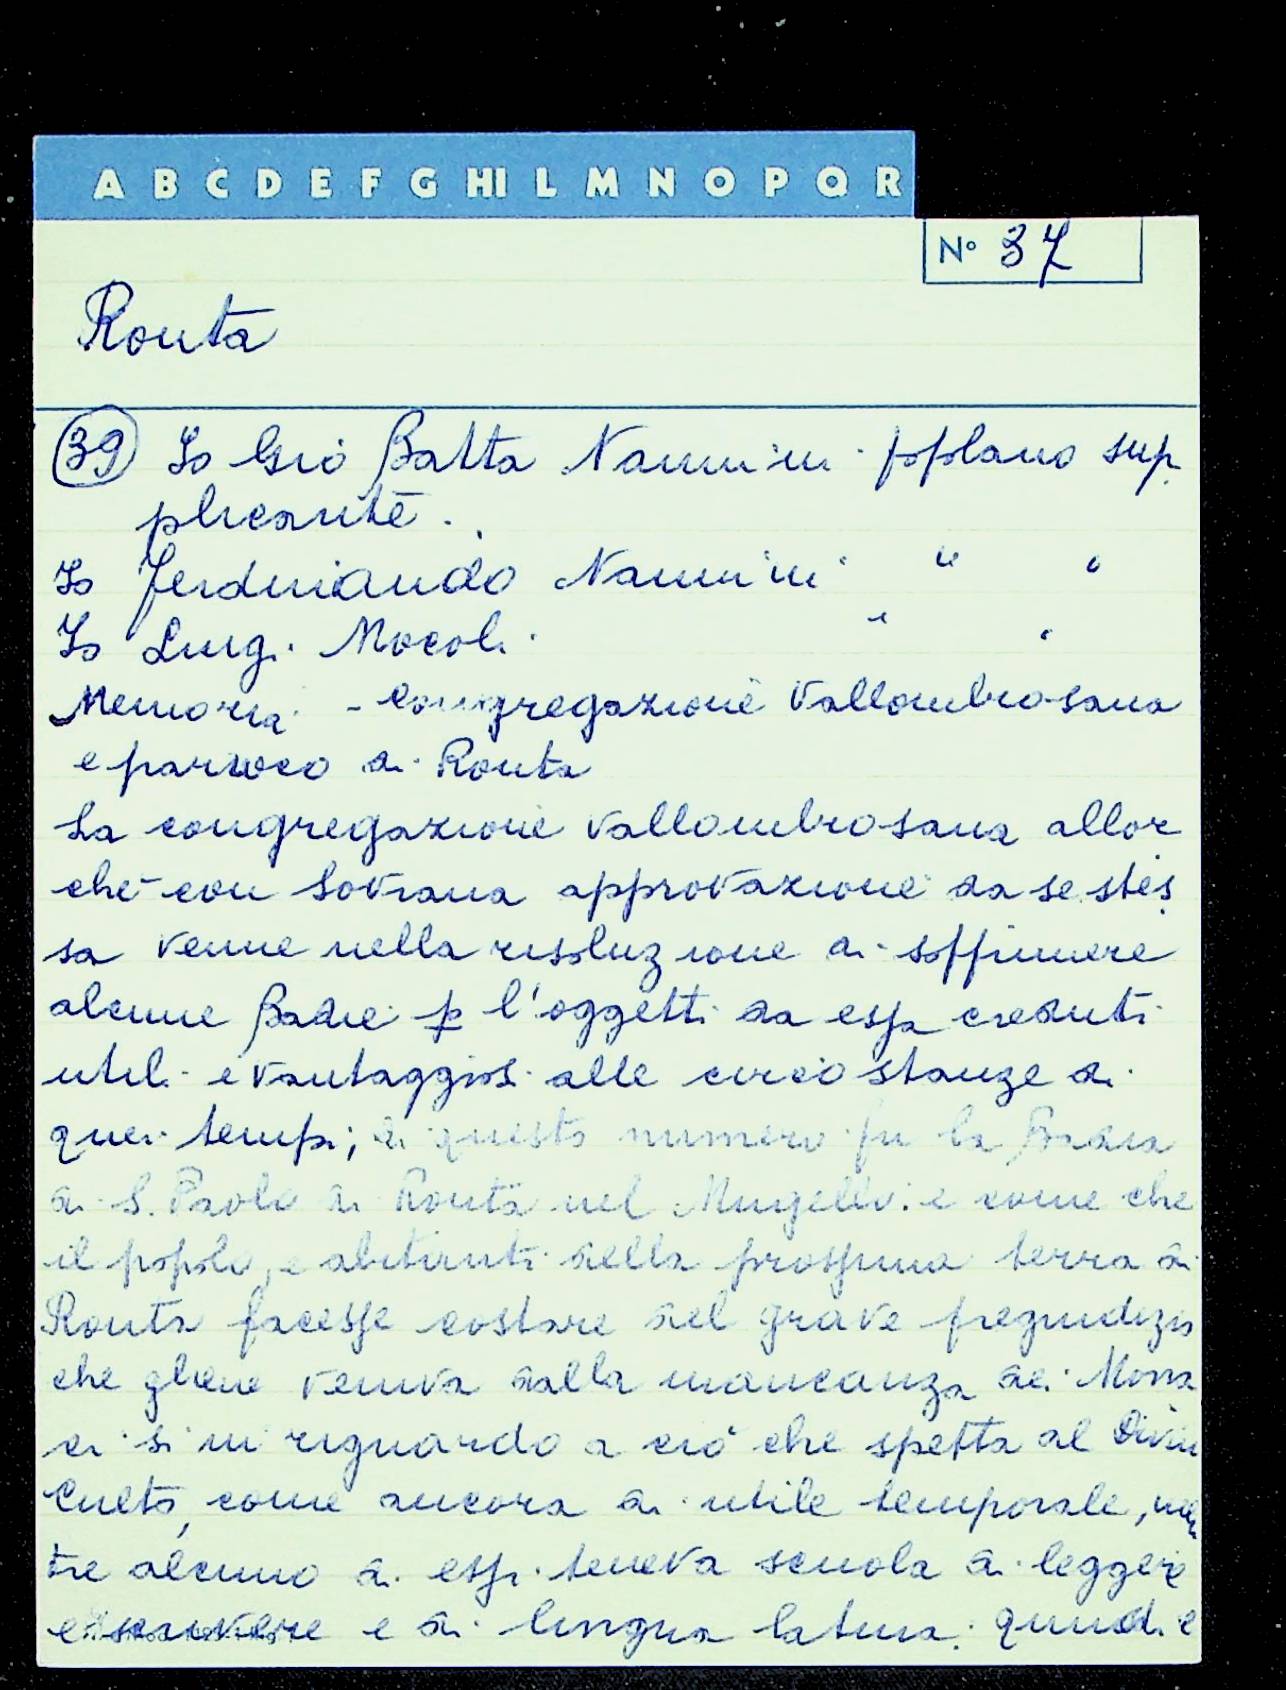 A B C D E F G HI L M N O P Q R
N° 37
Ronta
39 Io Gio Batta Nannini popolano sup
plicante.
Io Ferdinando Nannini " "
Io Luigi Mocoli " "
Memoria - Congregazione Vallombrosana
e parroco di Ronta
La congregazione Vallombrosana allor
chè con Sovrana approvazione da se stes
sa venne nella risoluzione di soppimere
alcune Badie p l'oggetti da essa creduti
utili e vantaggiosi alle circostanze di
quei tempi; di questo numero fu la Badia
di S. Paolo di Ronta nel Mugello: e come che
il popolo, e abitanti della prossima terra di
Ronta facesse costare del grave pregiudizio
che gliene veniva dalla mancanza dei Mona
ci si in riguardo a ciò che spetta al Divin
Culto, come ancora di utile temporale, men
tre alcuno di essi teneva scuola di leggere
e scrivere e di lingua latina: quindi è